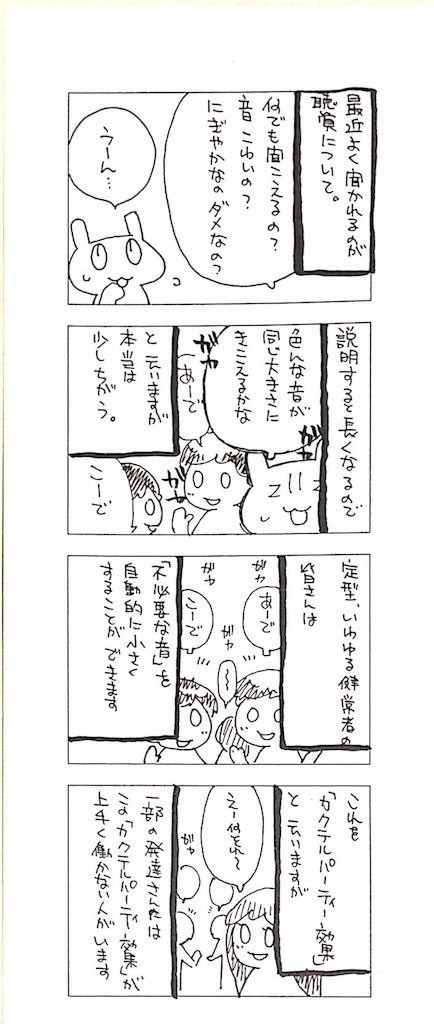 最近よく聞かれるのが
聴覚について。
何でも聞こえるの？
音こわいの？
にぎやかなのダメなの？
うーん…
説明すると長くなるので
色んな音が
同じ大きさに
きこえるかな
ガヤ
ガヤ
ガヤ
あーで
こーで
と云いますが
本当は
少しちがう。
定型、いわゆる健常者の
皆さんは
ガヤ
ガヤ
ガヤ
あーで
こーで
「不必要な音」を
自動的に小さく
することができます
これを
「カクテルパーティー効果」
と云いますが
えー何それ〜
ガヤ
一部の発達さんたちは
この「カクテルパーティー効果」が
上手く働かない人がいます